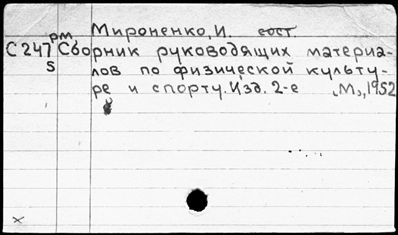 Мироненко, И. сост.
рт
С247 Сборник руководящих материа-
s лов по физической культу-
ре и спорту. Изд. 2-е М., 1952
x